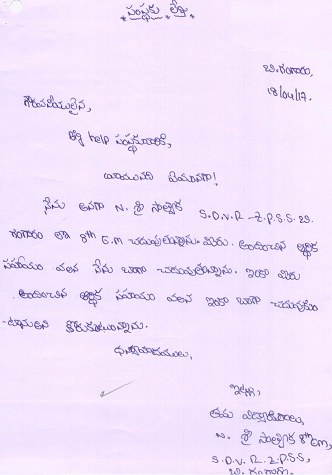 * సంస్థకు లేఖ *
బి.గంగారం,
18/04/17.
గౌరవనీయులైన,
help సంస్థవారికి,
వ్రాయునది ఏమనగా!
నేను అనగా N. శ్రీ సాత్విక S.D.V.R - Z.P.S.S. బి.
గంగారం లో 8th E.M చదువుతున్నాను. మీరు అందించిన ఆర్థిక
సహాయం వలన నేను బాగా చదువుతున్నాను. ఇంకా మీరు
అందించిన ఆర్థిక సహాయం వలన ఇంకా బాగా చదువుకుం
-టానని కోరుకుంటున్నాను.
ధన్యవాదములు,
ఇట్లు,
తమ విద్యార్థినిరాలు,
N. శ్రీ సాత్విక 8th EM,
S.D.V.R. Z.PSS,
బి. గంగారం.